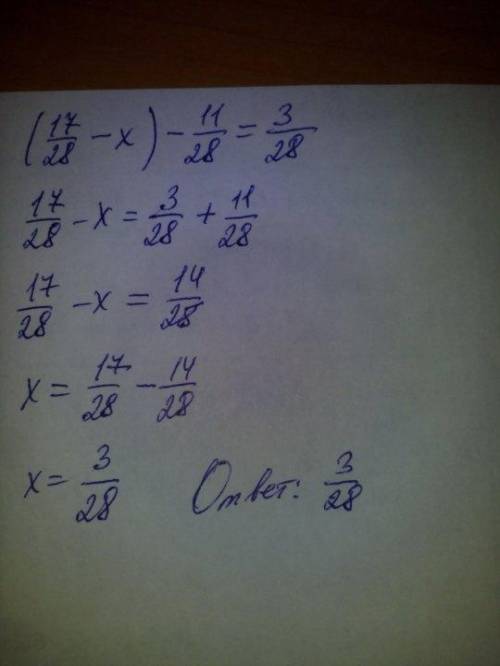 (17/28 - x) - 11/28 = 3/28
17/28 - x = 3/28 + 11/28
17/28 - x = 14/28
x = 17/28 - 14/28
x = 3/28 Ответ: 3/28